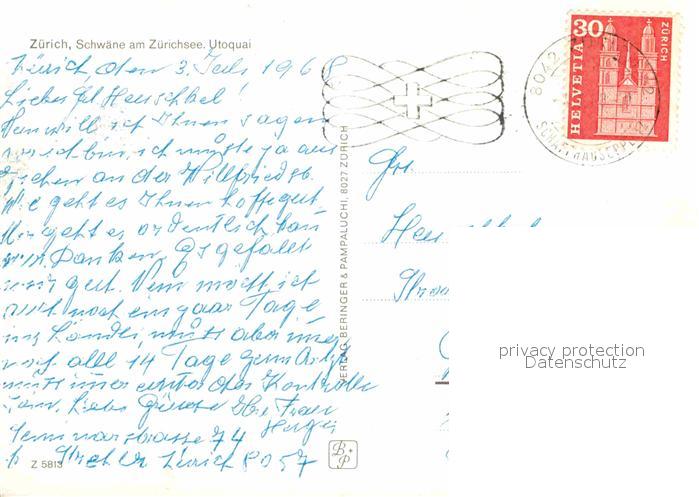 Zürich, Schwäne am Zürichsee. Utoquai
Zürich, den 3. Juli 1968
Liebes Frl Henschkel!
Nun will ich Ihnen sagen
wo ich bin, ich mußte ja aus
ziehen an der Willfriedstr.
Wie geht es Ihnen hoffe gut.
Mir geht es ordentlich kan
Danken. Es gefällt
mir gut. Nun möcht ich
noch ein paar Tage
ins Ländli, muß aber
noch alle 14 Tage zum Arzt
muß unter der Kontrolle
sein. Liebe Grüsse Ihre Frau
Seminarstrasse 74
b Zürich 8057
Z 5813
VERLAG BERINGER & PAMPALUCHI, 8027 ZÜRICH
B+P
HELVETIA
30
ZÜRICH
8042
SCHAFFHAUSERPLATZ
Frl.
privacy protection
Datenschutz